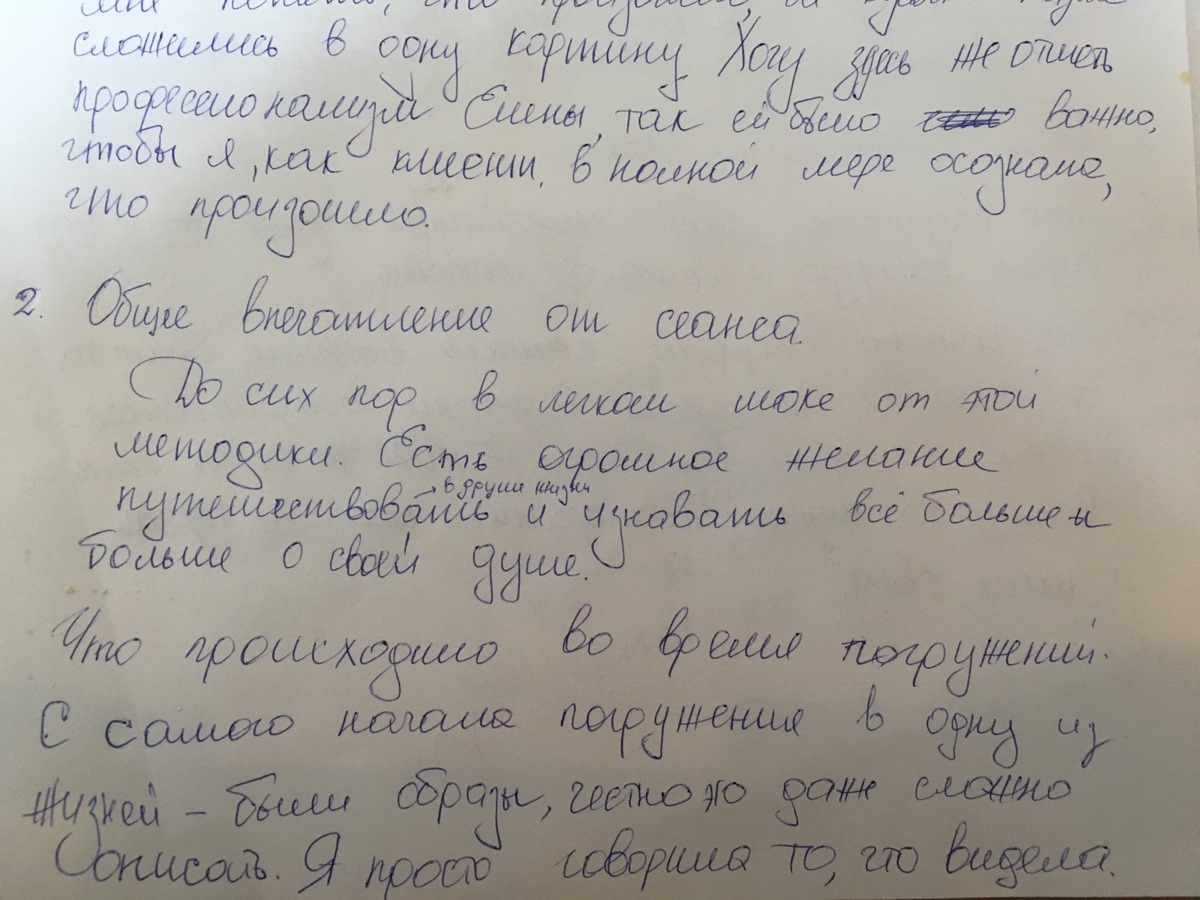 мне понять, что произошло,
сложились в одну картину Хочу здесь же отметь
профессионализм Елены, так ей было важно,
чтобы я, как клиент, в полной мере осознала,
что произошло.
2. Общее впечатление от сеанса.
До сих пор в легком шоке от той
методики. Есть огромное желание
в другие жизни
путешествовать и узнавать всё больше и
больше о своей душе.
Что происходило во время погружений.
С самого начала погружения в одну из
жизней – были образы, честно даже сложно
описать. Я просто говорила то, что видела.